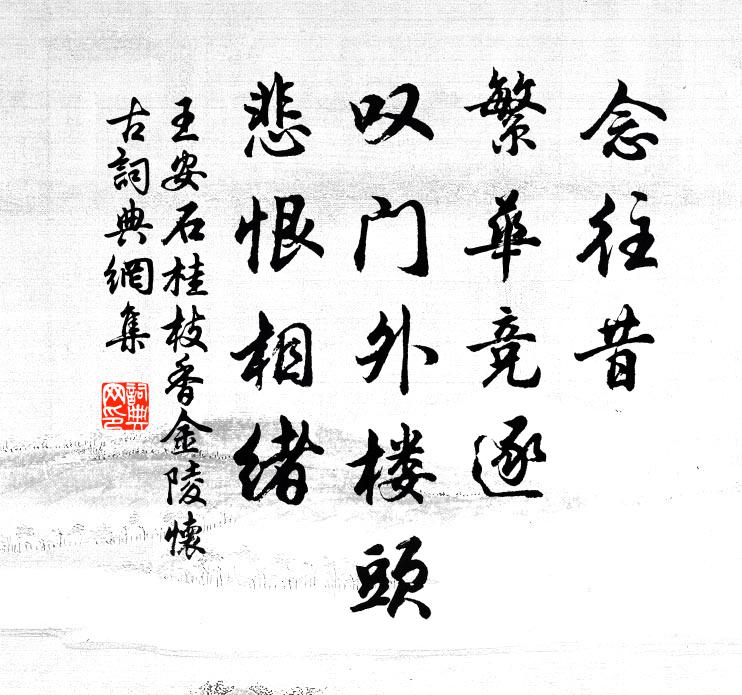 念往昔
繁華竞逐
叹门外楼頭
悲恨相绪
王安石桂枝香金陵懷
古詞典網集
詞典
网印